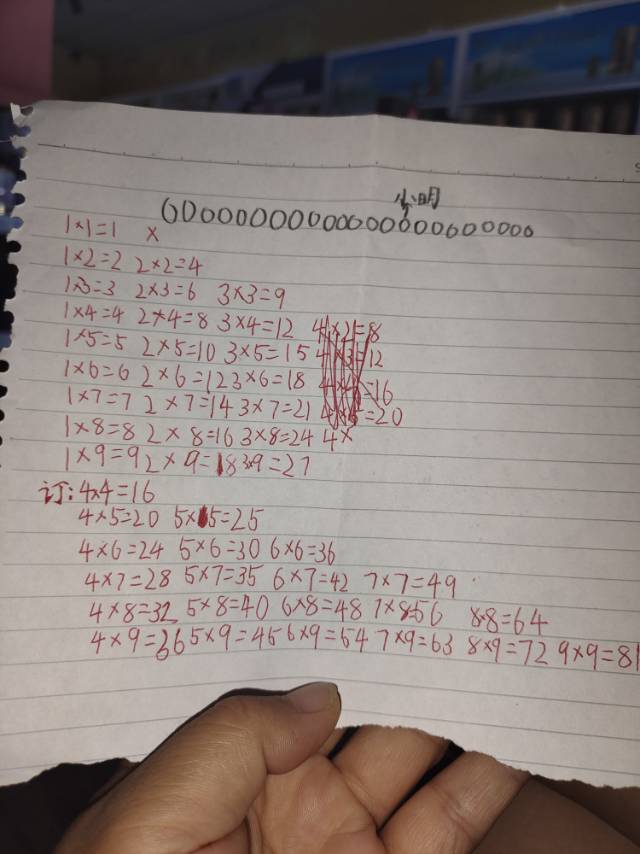 小明
0000000000000000000000000
1×1=1 ×
1×2=2 2×2=4
1×3=3 2×3=6 3×3=9
1×4=4 2×4=8 3×4=12 4×2=8
1×5=5 2×5=10 3×5=15 4×3=12
1×6=6 2×6=12 3×6=18 4×4=16
1×7=7 2×7=14 3×7=21 4×5=20
1×8=8 2×8=16 3×8=24 4×
1×9=9 2×9=18 3×9=27
订:4×4=16
4×5=20 5×5=25
4×6=24 5×6=30 6×6=36
4×7=28 5×7=35 6×7=42 7×7=49
4×8=32 5×8=40 6×8=48 7×8=56 8×8=64
4×9=36 5×9=45 6×9=54 7×9=63 8×9=72 9×9=81